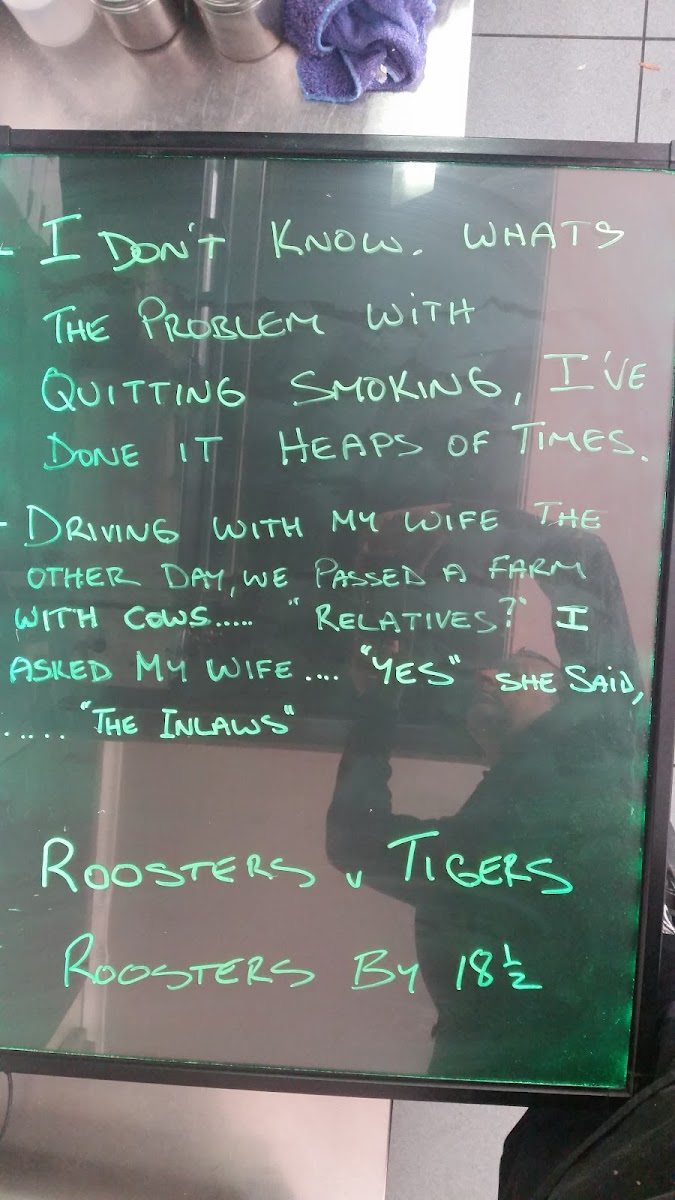 - I DON'T KNOW. WHATS
THE PROBLEM WITH
QUITTING SMOKING, I'VE
DONE IT HEAPS OF TIMES.
- DRIVING WITH MY WIFE THE
OTHER DAY, WE PASSED A FARM
WITH COWS..... "RELATIVES?" I
ASKED MY WIFE.... "YES" SHE SAID,
..... "THE INLAWS"
ROOSTERS v TIGERS
ROOSTERS BY 18 1/2